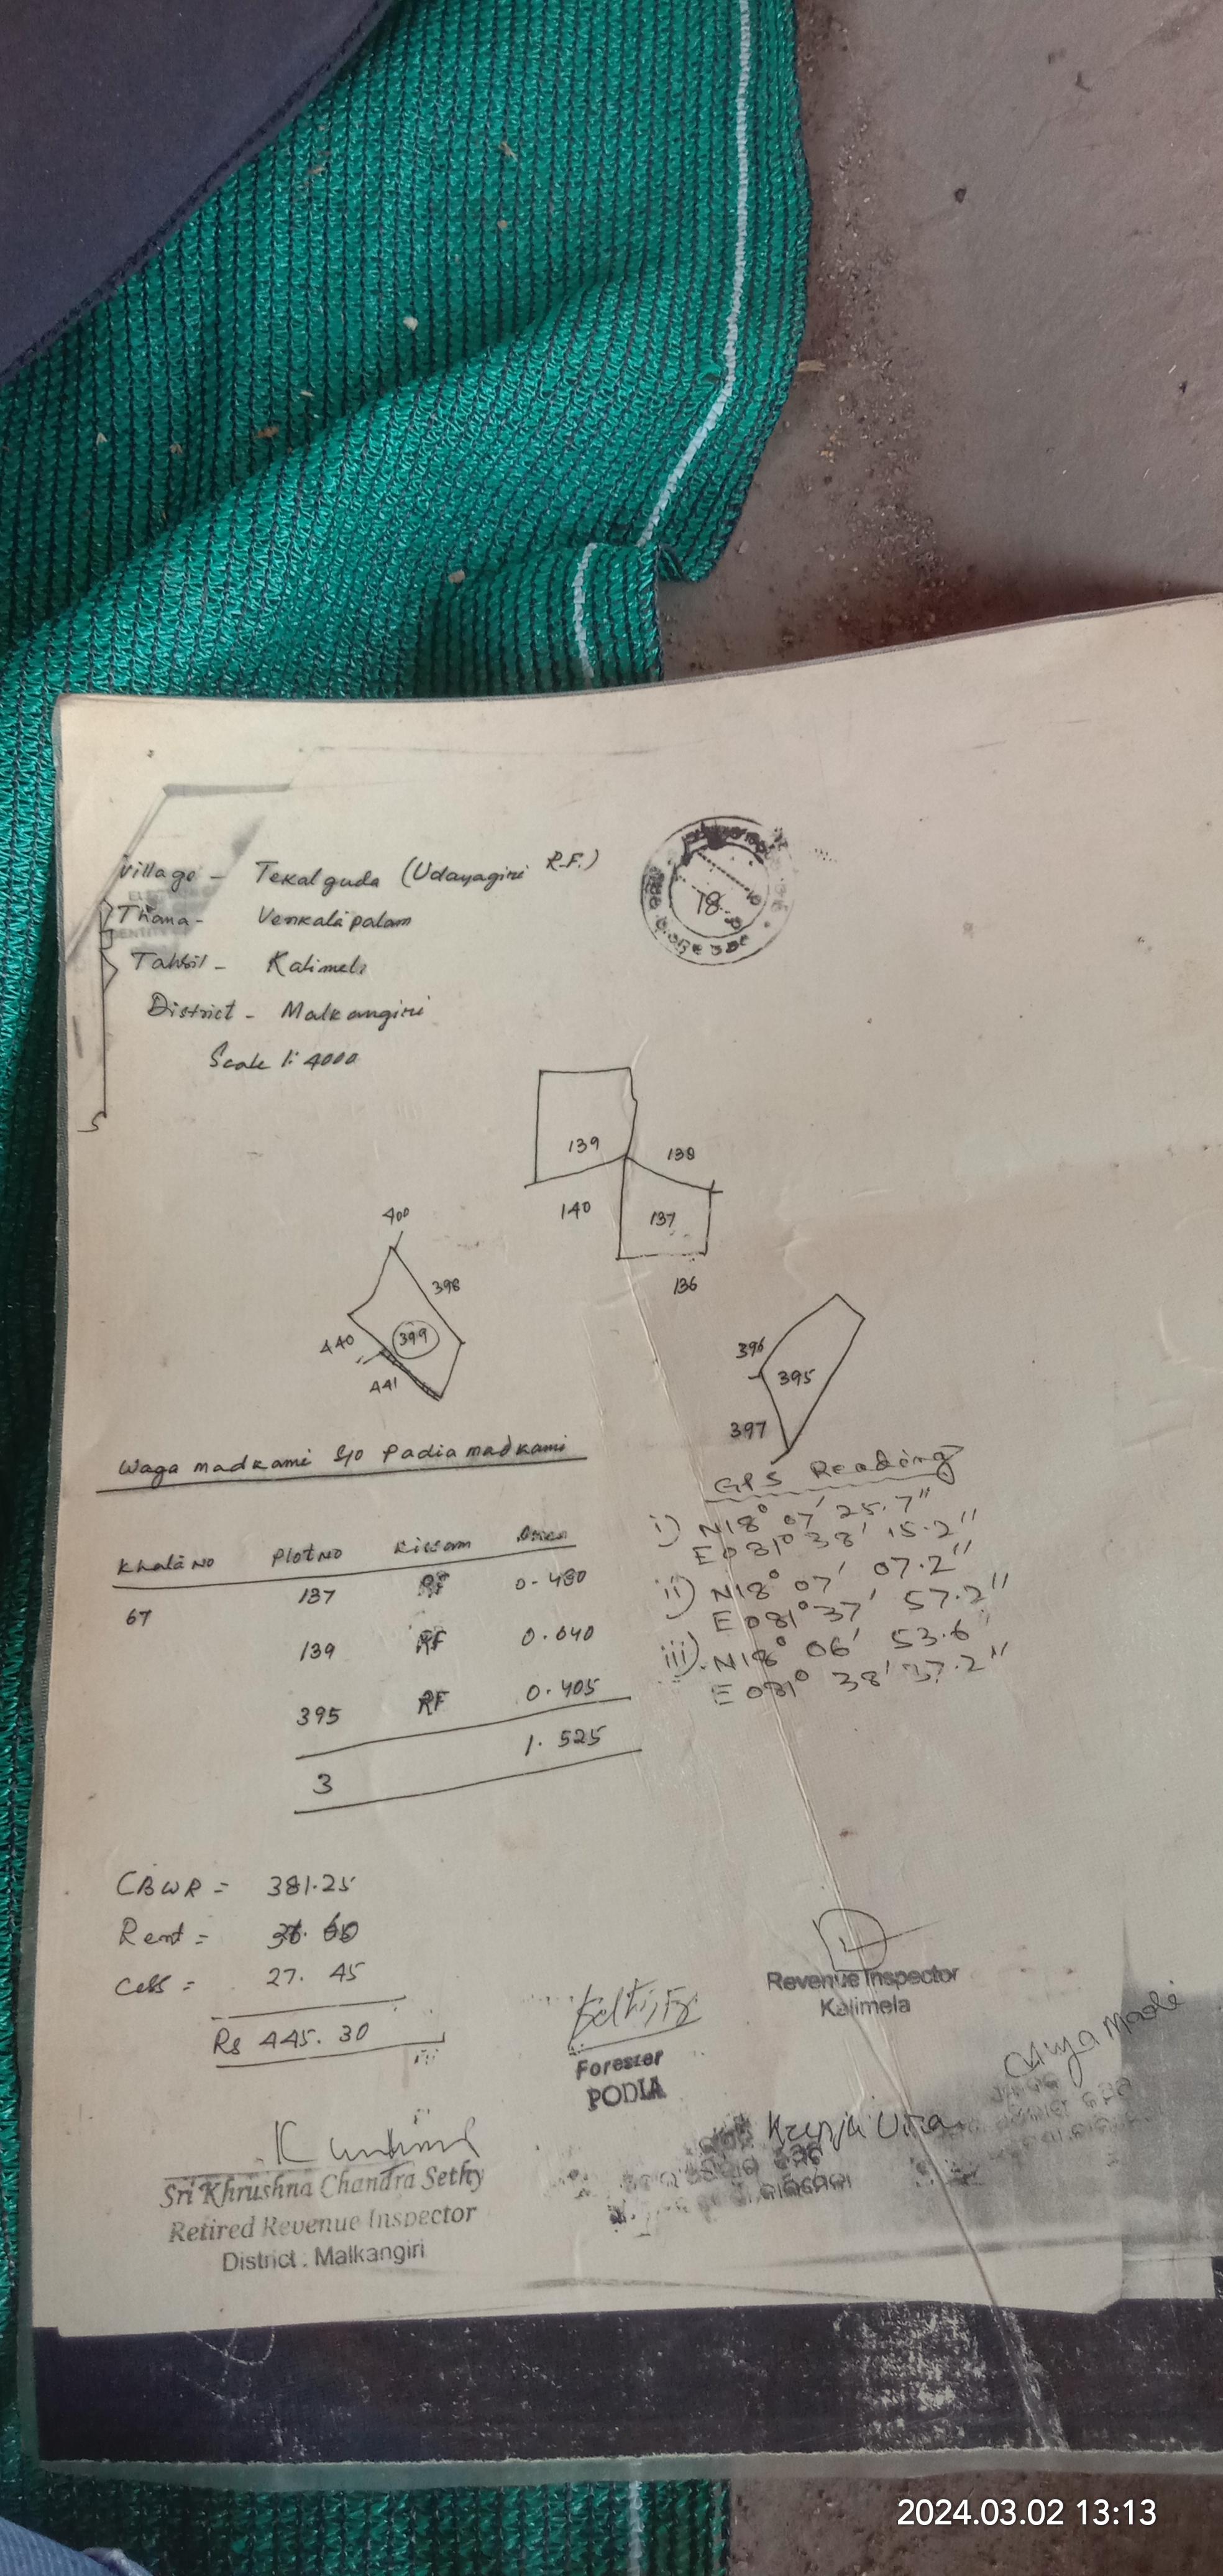 Village - Tekalguda (Udayagiri R.F.)
Thana - Venkatapalam
Tahsil - Kalimela
District - Malkangiri
Scale 1: 4000
18
S
139
138
140
137
136
400
398
440
399
441
396
395
397
Waga madkami S/o Padia madkami
GPS Reading
i) N18° 07' 25.7"
E081° 38' 15.2"
ii) N18° 07' 07.2"
E081° 37' 57.2"
iii). N18° 06' 53.6"
E081° 38' 37.2"
Khata No Plot No Kissam Area
67 137 RF 0.480
139 RF 0.640
395 RF 0.405
3 1.525
CBWR = 381.25
Rent = 36.60
Cess = 27.45
Rs 445.30
Revenue Inspector
Kalimela
Forester
PODIA
Sri Khrushna Chandra Sethy
Retired Revenue Inspector
District . Malkangiri
2024.03.02 13:13